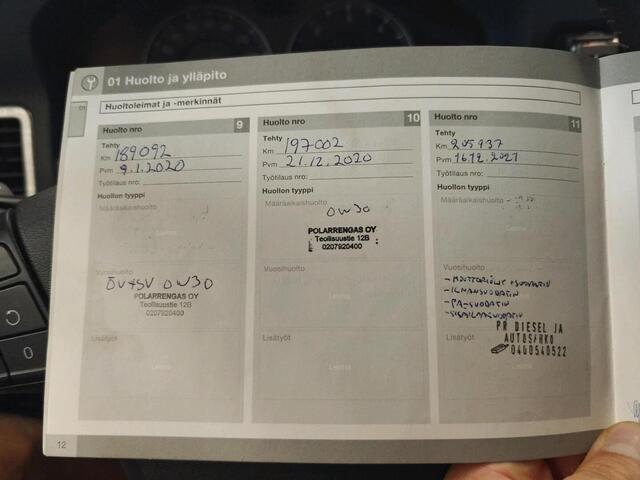 01 Huolto ja ylläpito
01
Huoltoleimat ja -merkinnät
Huolto nro 9
Tehty
Km 189092
Pvm 9.1.2020
Työtilaus nro:
Huollon tyyppi
Määräaikaishuolto
Leima
Vuosihuolto
ÖV+SV 0W30
POLARRENGAS OY
Teollisuustie 12B
0207920400
Lisätyöt
Leima
Huolto nro 10
Tehty
Km 197002
Pvm 21.12.2020
Työtilaus nro:
Huollon tyyppi
Määräaikaishuolto
0W30
POLARRENGAS OY
Teollisuustie 12B
0207920400
Vuosihuolto
Leima
Lisätyöt
Leima
Huolto nro 11
Tehty
Km 205937
Pvm 16.12.2021
Työtilaus nro:
Huollon tyyppi
Määräaikaishuolto
Leima
Vuosihuolto
-MOOTTORIÖLJY +SUODATIN
-ILMANSUODATIN
-PA-SUODATIN
-SISÄILMASUODATIN
PR DIESEL JA
AUTOSÄHKÖ
0460540522
Lisätyöt
Leima
12